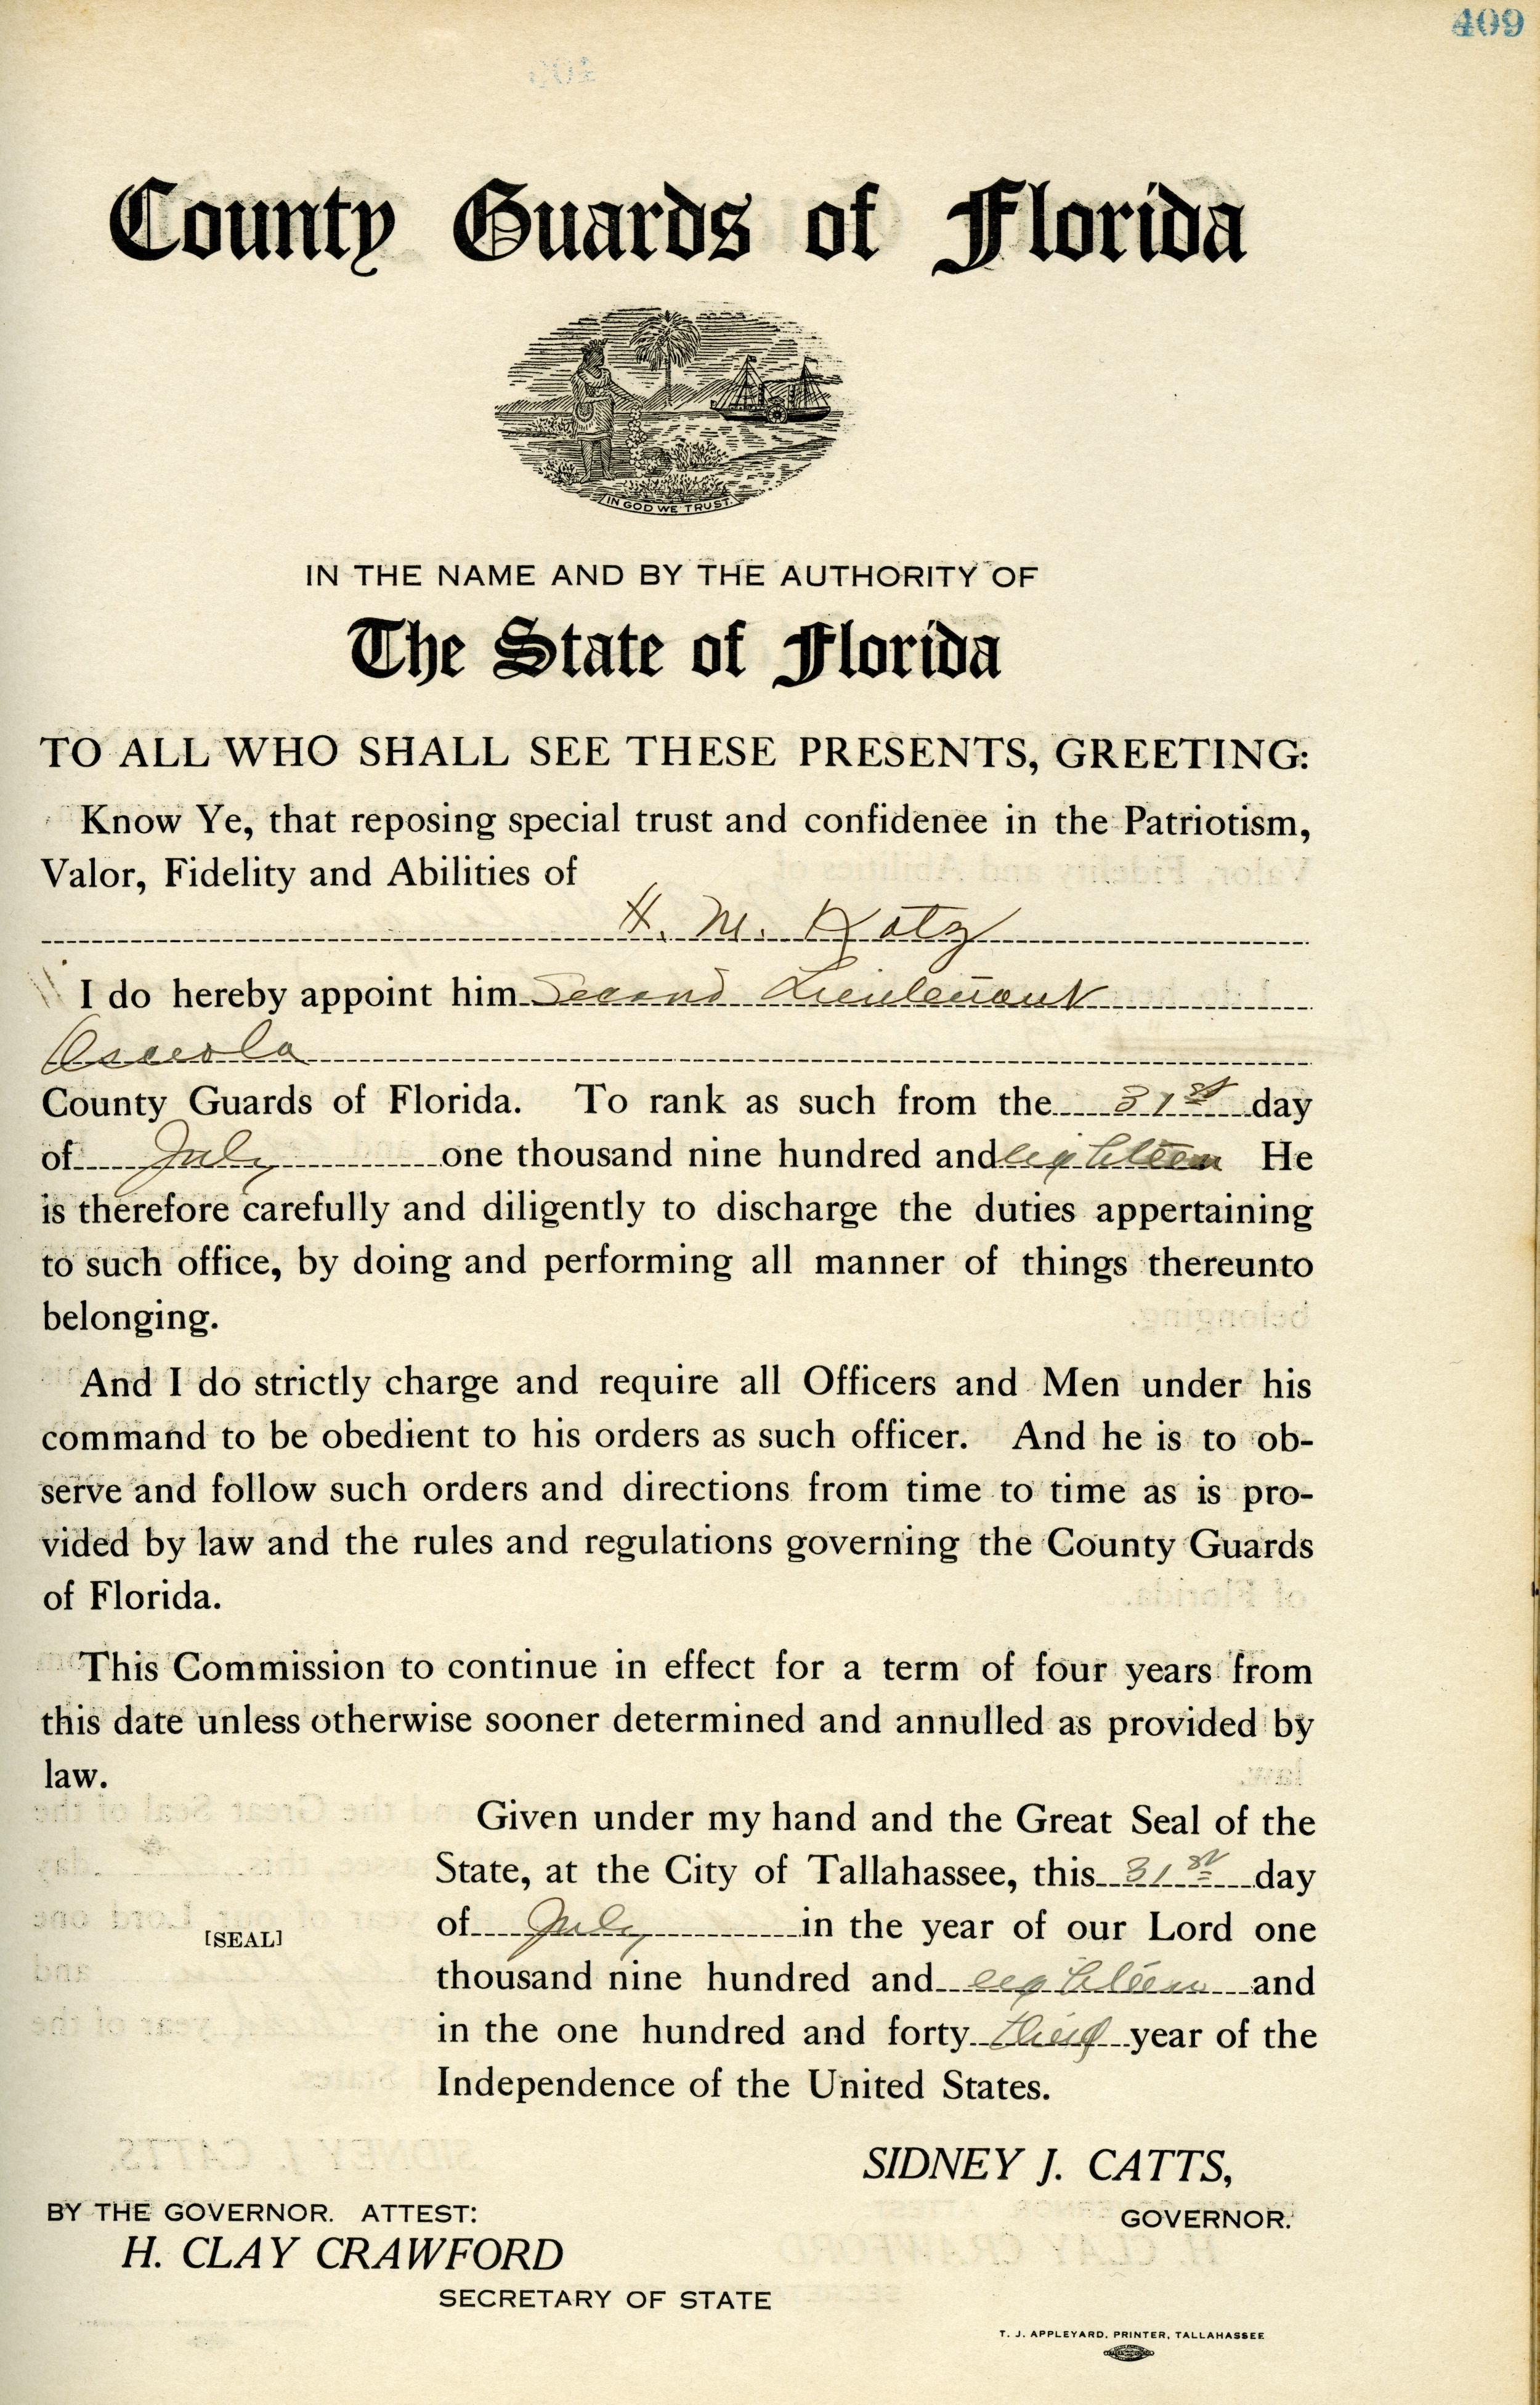 409
County Guards of Florida
IN GOD WE TRUST.
IN THE NAME AND BY THE AUTHORITY OF
The State of Florida
TO ALL WHO SHALL SEE THESE PRESENTS, GREETING:
Know Ye, that reposing special trust and confidenee in the Patriotism,
Valor, Fidelity and Abilities of
H. M. Katz
I do hereby appoint him Second Lieutenant
Osceola
County Guards of Florida. To rank as such from the 31st day
of July one thousand nine hundred and eighteen He
is therefore carefully and diligently to discharge the duties appertaining
to such office, by doing and performing all manner of things thereunto
belonging.
And I do strictly charge and require all Officers and Men under his
command to be obedient to his orders as such officer. And he is to ob-
serve and follow such orders and directions from time to time as is pro-
vided by law and the rules and regulations governing the County Guards
of Florida.
This Commission to continue in effect for a term of four years from
this date unless otherwise sooner determined and annulled as provided by
law.
Given under my hand and the Great Seal of the
State, at the City of Tallahassee, this 31st day
of July in the year of our Lord one
[SEAL]
thousand nine hundred and eighteen and
in the one hundred and forty third year of the
Independence of the United States.
SIDNEY J. CATTS,
GOVERNOR.
BY THE GOVERNOR. ATTEST:
H. CLAY CRAWFORD
SECRETARY OF STATE
T. J. APPLEYARD, PRINTER, TALLAHASSEE